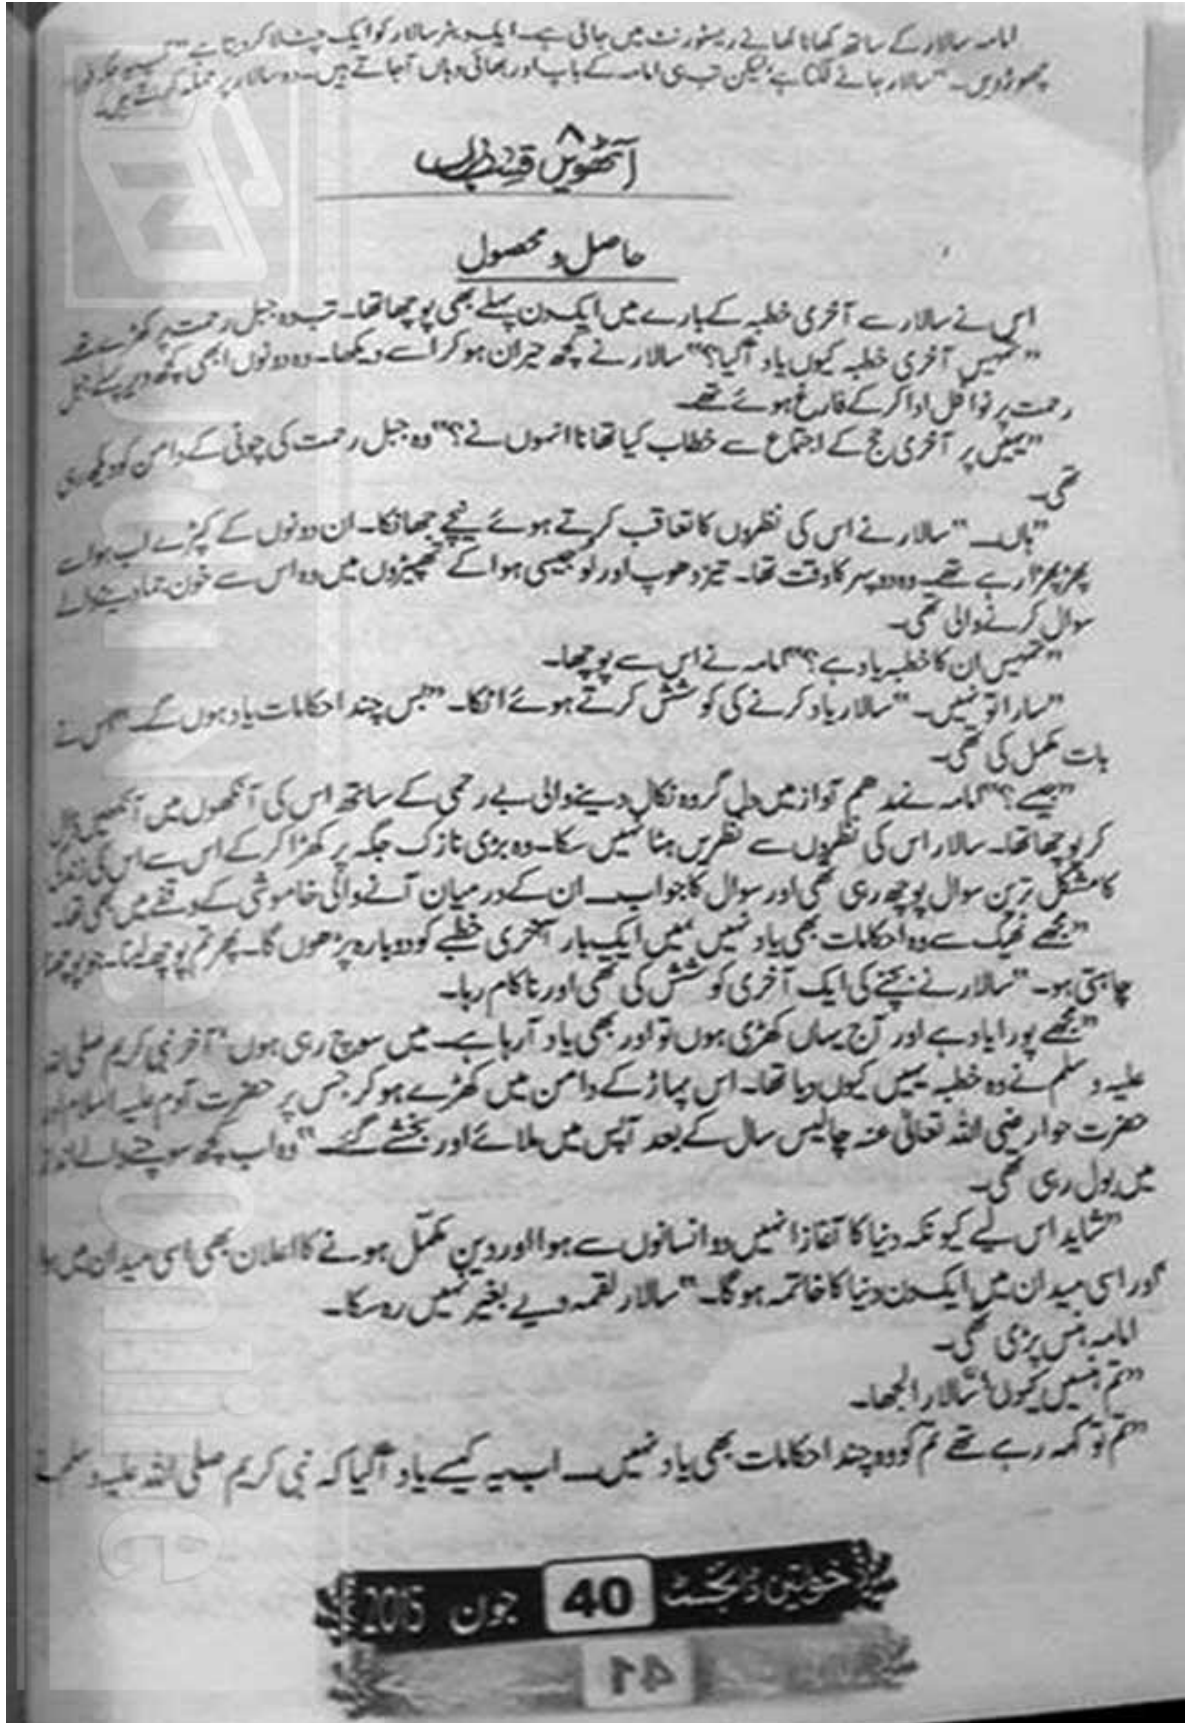 امامہ سالار کے ساتھ کھانا کھانے ریسٹورنٹ میں جاتی ہے۔ ایک ویٹر سالار کو ایک چٹ لا کر دیتا ہے
چھوڑ دیں۔" سالار جانے لگتا ہے، لیکن تب ہی امامہ کے باپ اور بھائی وہاں آجاتے ہیں۔ وہ سالار پر حملہ کرتے ہیں۔
آٹھویں قسط
حاصل و محصول
اس نے سالار سے آخری خطبہ کے بارے میں ایک دن پہلے بھی پوچھا تھا۔ تب وہ جبل رحمت پر کھڑے تھے
"تمہیں آخری خطبہ کیوں یاد آگیا؟" سالار نے کچھ حیران ہو کر اسے دیکھا۔ وہ دونوں ابھی کچھ دیر پہلے جبل
رحمت پر نوافل ادا کر کے فارغ ہوئے تھے۔
"یہیں پر آخری حج کے اجتماع سے خطاب کیا تھا نا انہوں نے؟" وہ جبل رحمت کی چوٹی کے دامن کو دیکھ رہی
تھی۔
"ہاں۔۔" سالار نے اس کی نظروں کا تعاقب کرتے ہوئے نیچے جھانکا۔ ان دونوں کے کپڑے اب ہوا سے
پھڑپھڑا رہے تھے۔ وہ دوپہر کا وقت تھا۔ تیز دھوپ اور لو جیسی ہوا کے تھپیڑوں میں وہ اس سے خون جما دینے والے
سوال کرنے والی تھی۔
"تمہیں ان کا خطبہ یاد ہے؟" امامہ نے اس سے پوچھا۔
"سارا تو نہیں۔" سالار یاد کرنے کی کوشش کرتے ہوئے اٹکا۔ "بس چند احکامات یاد ہوں گے۔" اس نے
بات مکمل کی تھی۔
"جیسے؟" امامہ نے مدھم آواز میں دل گردہ نکال دینے والی بے رحمی کے ساتھ اس کی آنکھوں میں آنکھیں ڈال
کر پوچھا تھا۔ سالار اس کی نظروں سے نظریں ہٹا نہیں سکا۔ وہ بڑی نازک جگہ پر کھڑا کر کے اس سے اس کی زندگی
کا مشکل ترین سوال پوچھ رہی تھی اور سوال کا جواب۔۔ ان کے درمیان آنے والی خاموشی کے وقفے میں بھی تھا۔
"مجھے ٹھیک سے وہ احکامات بھی یاد نہیں میں ایک بار آخری خطبے کو دوبارہ پڑھوں گا۔ پھر تم پوچھ لینا۔ جو پوچھنا
چاہتی ہو۔" سالار نے بچنے کی ایک آخری کوشش کی تھی اور ناکام رہا۔
"مجھے پورا یاد ہے اور آج یہاں کھڑی ہوں تو اور بھی یاد آرہا ہے۔ میں سوچ رہی ہوں، آخر نبی کریم صلی اللہ
علیہ وسلم نے وہ خطبہ یہیں کیوں دیا تھا۔ اس پہاڑ کے دامن میں کھڑے ہو کر جس پر حضرت آدم علیہ السلام اور
حضرت حوا رضی اللہ تعالٰی عنہ چالیس سال کے بعد آپس میں ملائے اور بخشے گئے۔" وہ اب کچھ سوچنے والے انداز
میں بول رہی تھی۔
"شاید اس لیے کیونکہ دنیا کا آغاز انہیں دو انسانوں سے ہوا اور دین مکمّل ہونے کا اعلان بھی اسی میدان میں ہوا
اور اسی میدان میں ایک دن دنیا کا خاتمہ ہوگا۔" سالار لقمہ دیے بغیر نہیں رہ سکا۔
امامہ ہنس پڑی تھی۔
"تم ہنسیں کیوں؟" سالار الجھا۔
"تم تو کہہ رہے تھے تم کو وہ چند احکامات بھی یاد نہیں۔۔ اب یہ کیسے یاد آگیا کہ نبی کریم صلی اللہ علیہ وسلم
خواتین ڈائجسٹ 40 جون 2015
41